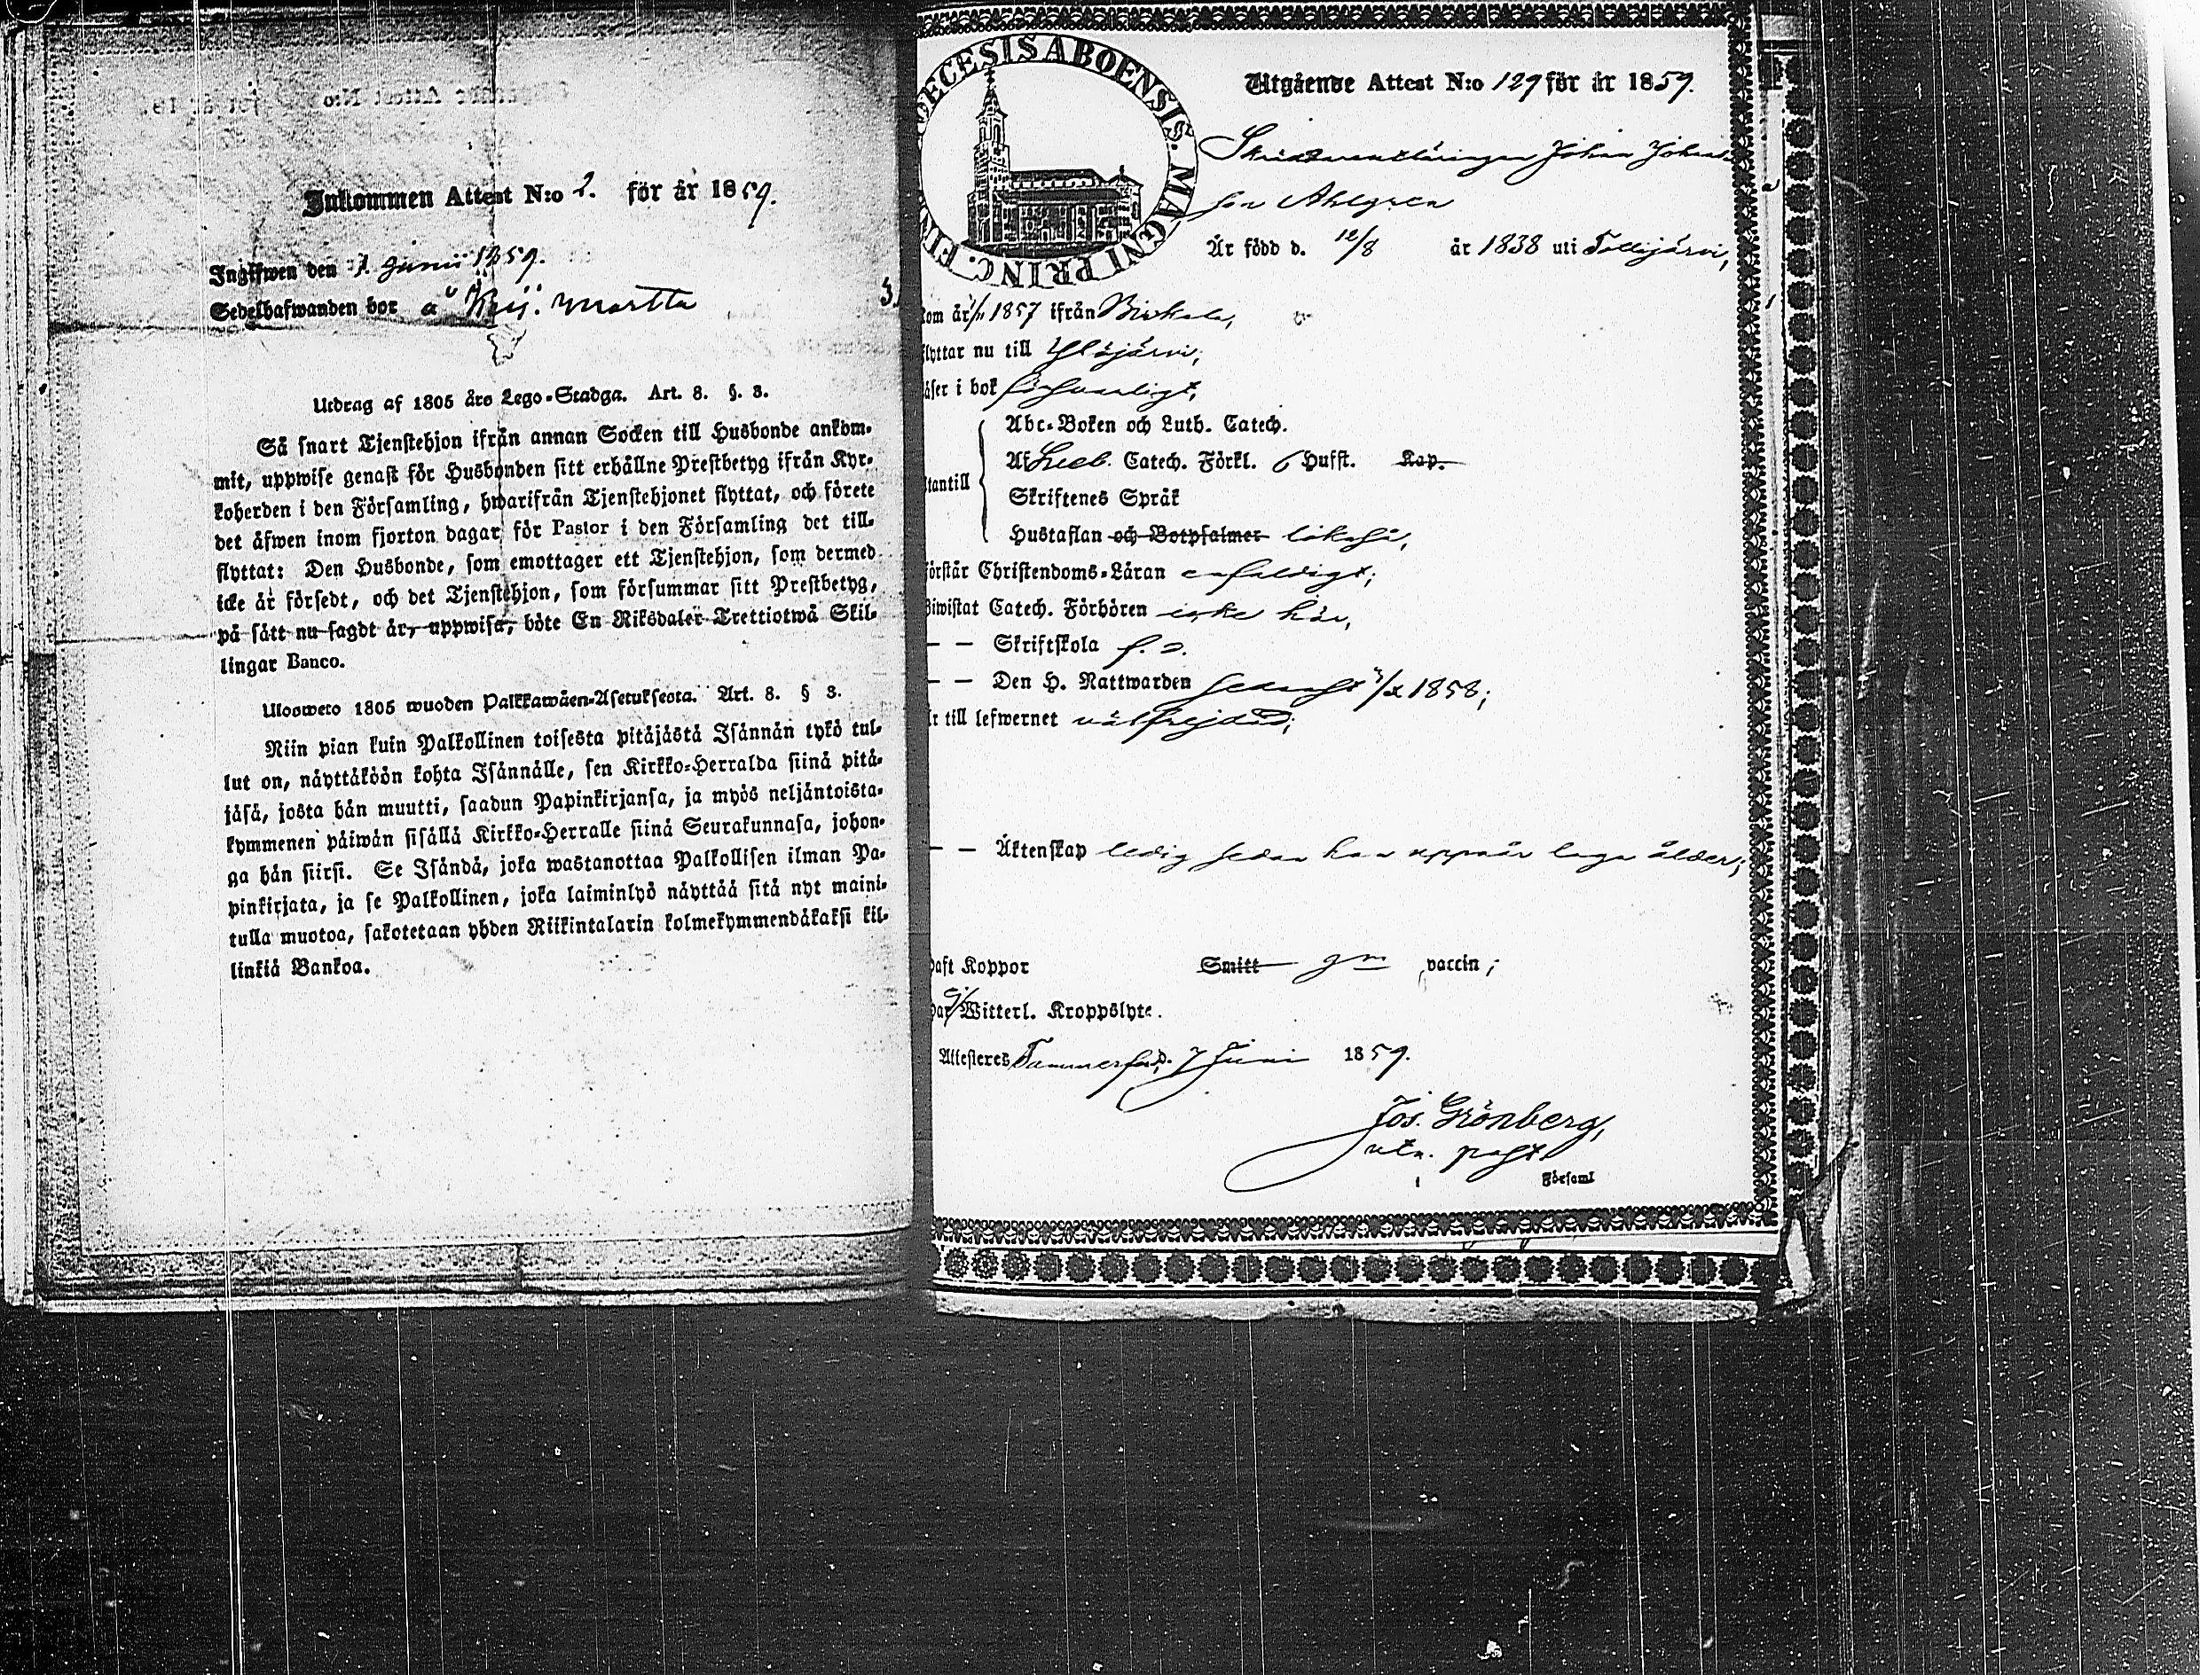 Inkommen Attest N:o 2. för år 1859.
Ingifwen den 7 Junii 1859.
Sedelhafwanden bor å
Utdrag af 1805 års Lego-Stadga. Art. 8. §. 3.
Så snart Tjenstehjon ifrån annan Socken till Husbonde ankom-
mit, uppwise genast för Husbonden sitt erhållne Prestbetyg ifrån Kyr-
koherden i den Församling, hwarifrån Tjenstehjonet flyttat, och förete
det äfwen inom fjorton dagar för Pastor i den Församling det till-
flyttat: Den Husbonde, som emottager ett Tjenstehjon, som dermed
icke är försedt, och det Tjenstehjon, som försummar sitt Prestbetyg,
på sätt nu sagdt är, uppwisa, böte En Riksdaler Trettiotwå Skil-
lingar Banco.
Ulosweto 1805 wuoden Palkkawäen-Asetuksesta. Art. 8. § 3.
Niin pian kuin Palkollinen toisesta pitäjästä Isännän tykö tul-
lut on, näyttäköön kohta Isännälle, sen Kirkko-Herralda siinä pitä-
jäsä, josta hän muutti, saadun Papinkirjansa, ja myös neljäntoista-
kymmenen päiwän sisällä Kirkko-Herralle siinä Seurakunnasa, johon-
ga hän siirsi. Se Isändä, joka wastanottaa Palkollisen ilman Pa-
pinkirjata, ja se Palkollinen, joka laiminlyö näyttää sitä nyt maini-
tulla muotoa, sakotetaan yhden Riikintalarin kolmekymmendäkaksi kil-
linkiä Bankoa.
DIOECESIS ABOENSIS. MAGNI PRINC. FIN
Utgående Attest N:o 129 för år 1859.
Johan Johans-
son Ahlgren
Är född d. 12/8 år 1838 uti Tottijärvi,
kom år 1857 ifrån Birkala,
flyttar nu till Ylöjärvi;
läser i bok försvarligt,
Abc-Boken och Luth. Catech.
Utantill Af Catech. Förkl. 6 Hufst. Kap.
Skriftenes Språk
Hustaflan och Botpsalmer likaså,
förstår Christendoms-Läran enfaldigt;
Biwistat Catech. Förhören icke här,
— — Skriftskola
— — Den H. Nattwarden senast 1858;
är till lefwernet välfrejdad;
— — Äktenskap ledig sedan han uppnår laga ålder;
haft Koppor Smitt gm vaccin;
har Witterl. Kroppslyte.
Attesteres Tammerfors d. 7 Juni 1859.
Jos. Grönberg,
Församl